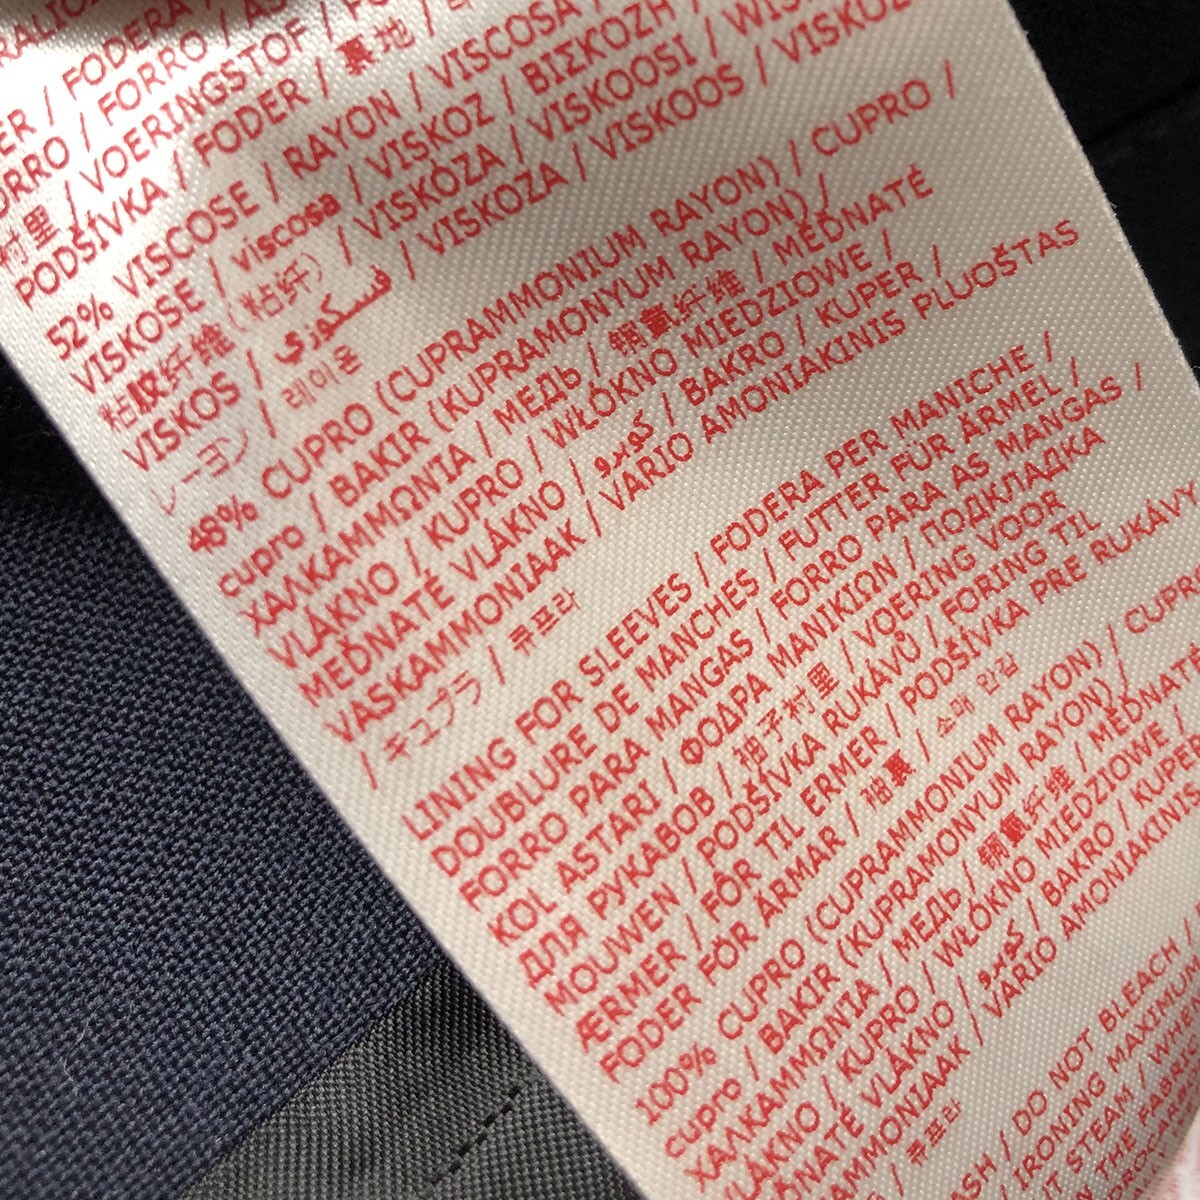 ER / FODERA
FORRO / FORRO / A
村里 / VOERINGSTOF / FO
PODŠÍVKA / FODER / 裏地 /
52% VISCOSE / RAYON / VISCOSA /
VISKOSE / viscosa / VISKOZ / ΒΙΣΚΟΖΗ /
粘胶纤维(粘纤) / VISKÓZA / VISKOOSI / WIS
VISKOS / فسكوزي / VISKOZA / VISKOOS / VISKOZ
レーヨン / 레이온
48% CUPRO (CUPRAMMONIUM RAYON) / CUPRO /
cupro / BAKIR (KUPRAMONYUM RAYON) /
ΧΑΛΚΑΜΜΩΝΊΑ / МЕДЬ / 铜氨纤维 / MĚDNATÉ
VLÁKNO / KUPRO / WŁÓKNO MIEDZIOWE /
MEĎNATÉ VLÁKNO / كوبرو / BAKRO / KUPER /
VASKAMMONIAAK / VARIO AMONIAKINIS PLUOŠTAS
/ キュプラ / 큐프라
LINING FOR SLEEVES / FODERA PER MANICHE /
DOUBLURE DE MANCHES / FUTTER FÜR ÄRMEL /
FORRO PARA MANGAS / FORRO PARA AS MANGAS /
KOL ASTARI / ΦΟΔΡΑ ΜΑΝΙΚΙΩΝ / ПОДКЛАДКА
ДЛЯ РУКАВОВ / 袖子村里 / VOERING VOOR
MOUWEN / PODŠÍVKA RUKÁVŮ / FORING TIL
ÆRMER / FÔR TIL ERMER / PODŠÍVKA PRE RUKÁVY
FODER FÖR ÄRMAR / 袖裏 / 소매 안감
100% CUPRO (CUPRAMMONIUM RAYON) / CUPR
cupro / BAKIR (KUPRAMONYUM RAYON) /
ΧΑΛΚΑΜΜΩΝΊΑ / МЕДЬ / 铜氨纤维 / MĚDNATÉ
VLÁKNO / KUPRO / WŁÓKNO MIEDZIOWE /
NATÉ VLÁKNO / كوبرو / BAKRO / KUPE
AMMONIAAK / VARIO AMONIAKINIS
/ 큐프라
ASH / DO NOT BLEACH /
/ IRONING MAXIMUM
T STEAM / WHE
N THE FABRI